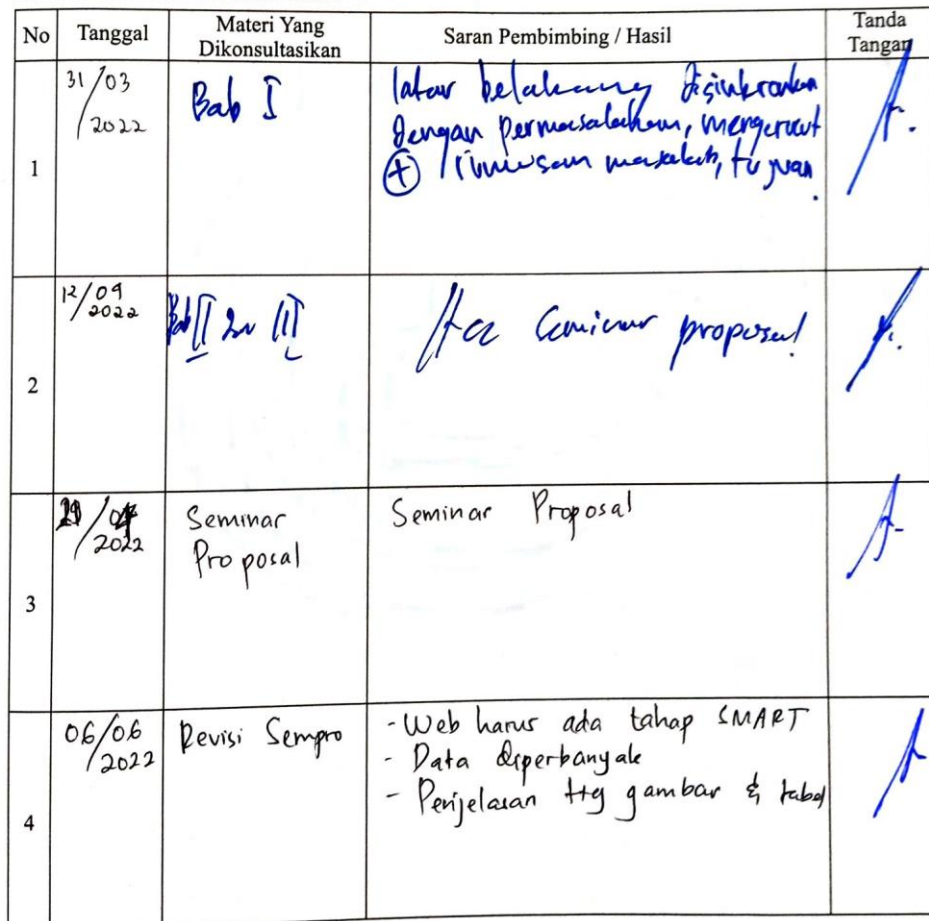 No Tanggal Materi Yang Dikonsultasikan Saran Pembimbing / Hasil Tanda Tangan
1
31/03
2022
Bab I
latar belakang disinkronkan
dengan permasalahan, mengerucut
+ rumusan masalah, tujuan.
2
12/04
2022
Bab II III
Acc Seminar proposal
3
2022
Seminar
Proposal
Seminar Proposal
4
06/06
2022
Revisi Sempro
- Web harus ada tahap SMART
- Data diperbanyak
- Penjelasan ttg gambar & tabel